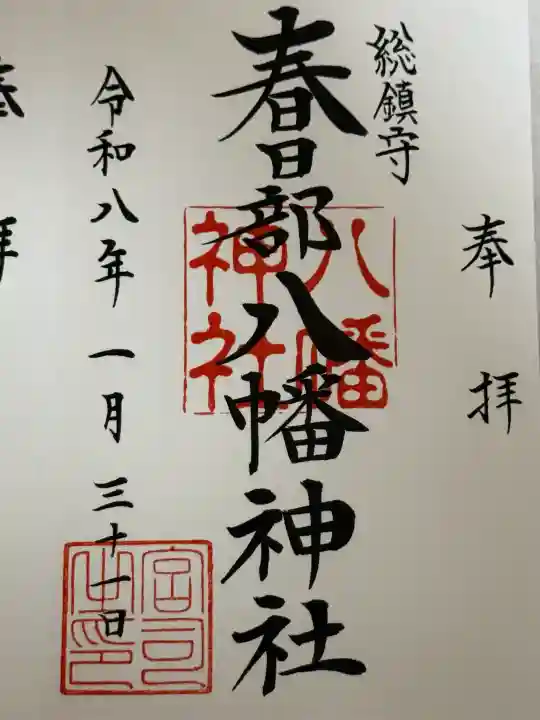 奉拝
総鎮守
春日部八幡神社
八幡
神社
令和八年一月三十一日
宮司
之印